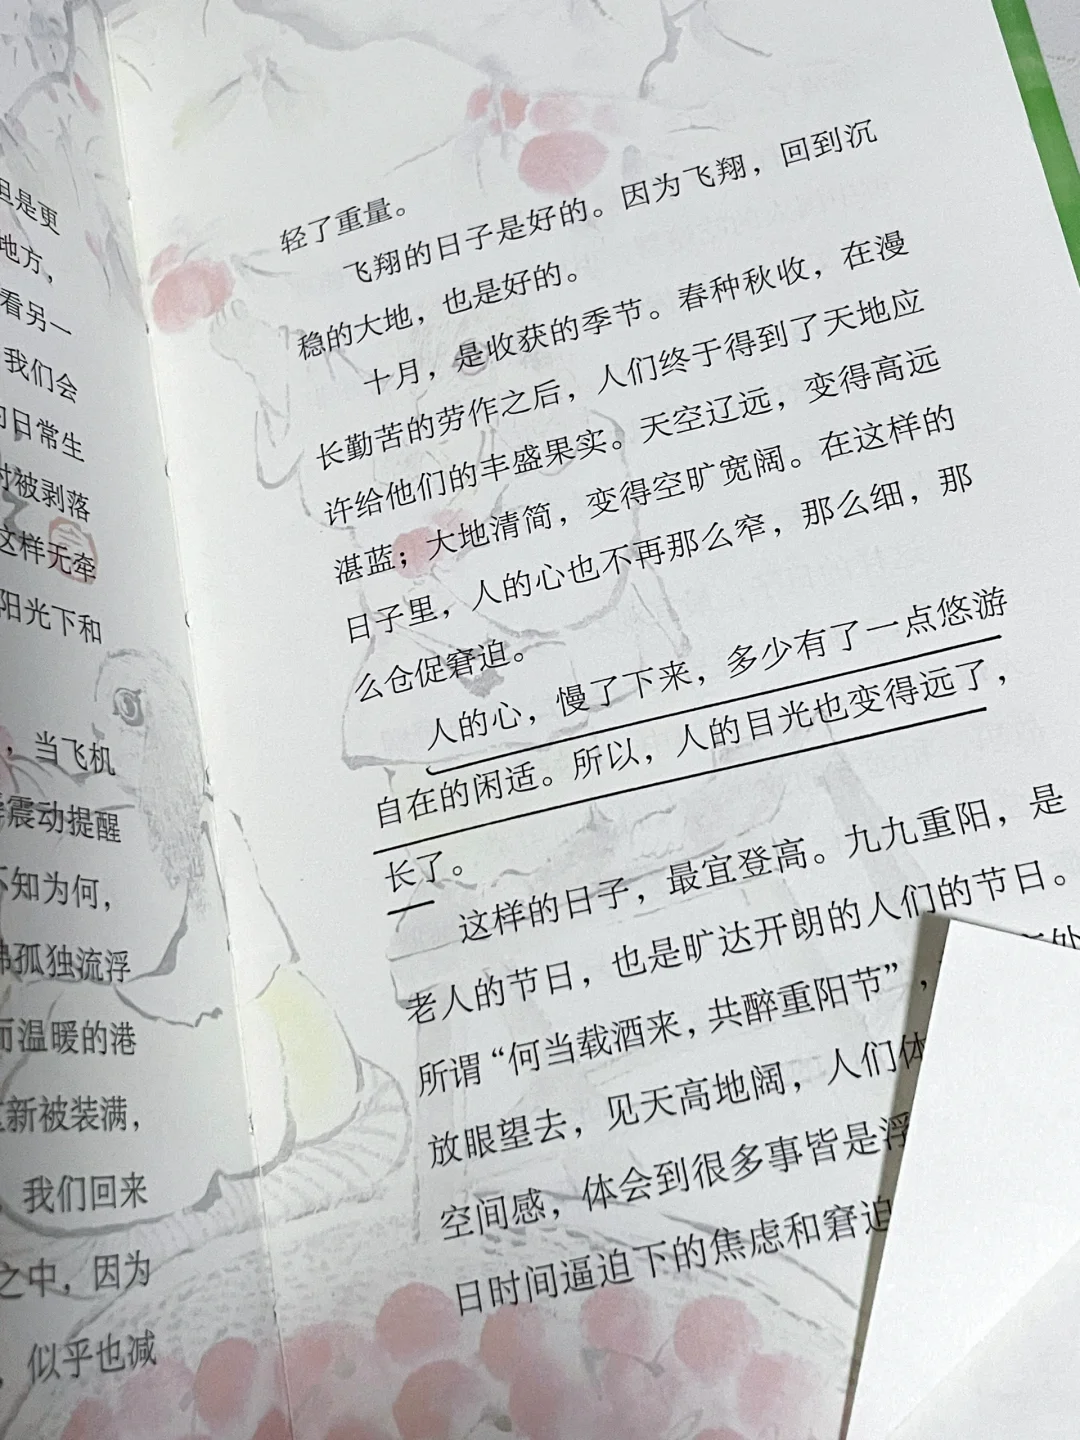 但是更
地方，
看另一
我们会
的日常生
时被剥落
这样无牵
阳光下和
，当飞机
震动提醒
不知为何，
孤独流浮
而温暖的港
重新被装满，
我们回来
之中，因为
，似乎也减
轻了重量。
飞翔的日子是好的。因为飞翔，回到沉
稳的大地，也是好的。
十月，是收获的季节。春种秋收，在漫
长勤苦的劳作之后，人们终于得到了天地应
许给他们的丰盛果实。天空辽远，变得高远
湛蓝；大地清简，变得空旷宽阔。在这样的
日子里，人的心也不再那么窄，那么细，那
么仓促窘迫。
人的心，慢了下来，多少有了一点悠游
自在的闲适。所以，人的目光也变得远了，
长了。
这样的日子，最宜登高。九九重阳，是
老人的节日，也是旷达开朗的人们的节日。
所谓“何当载酒来，共醉重阳节”，
放眼望去，见天高地阔，人们体
空间感，体会到很多事皆是浮
日时间逼迫下的焦虑和窘迫